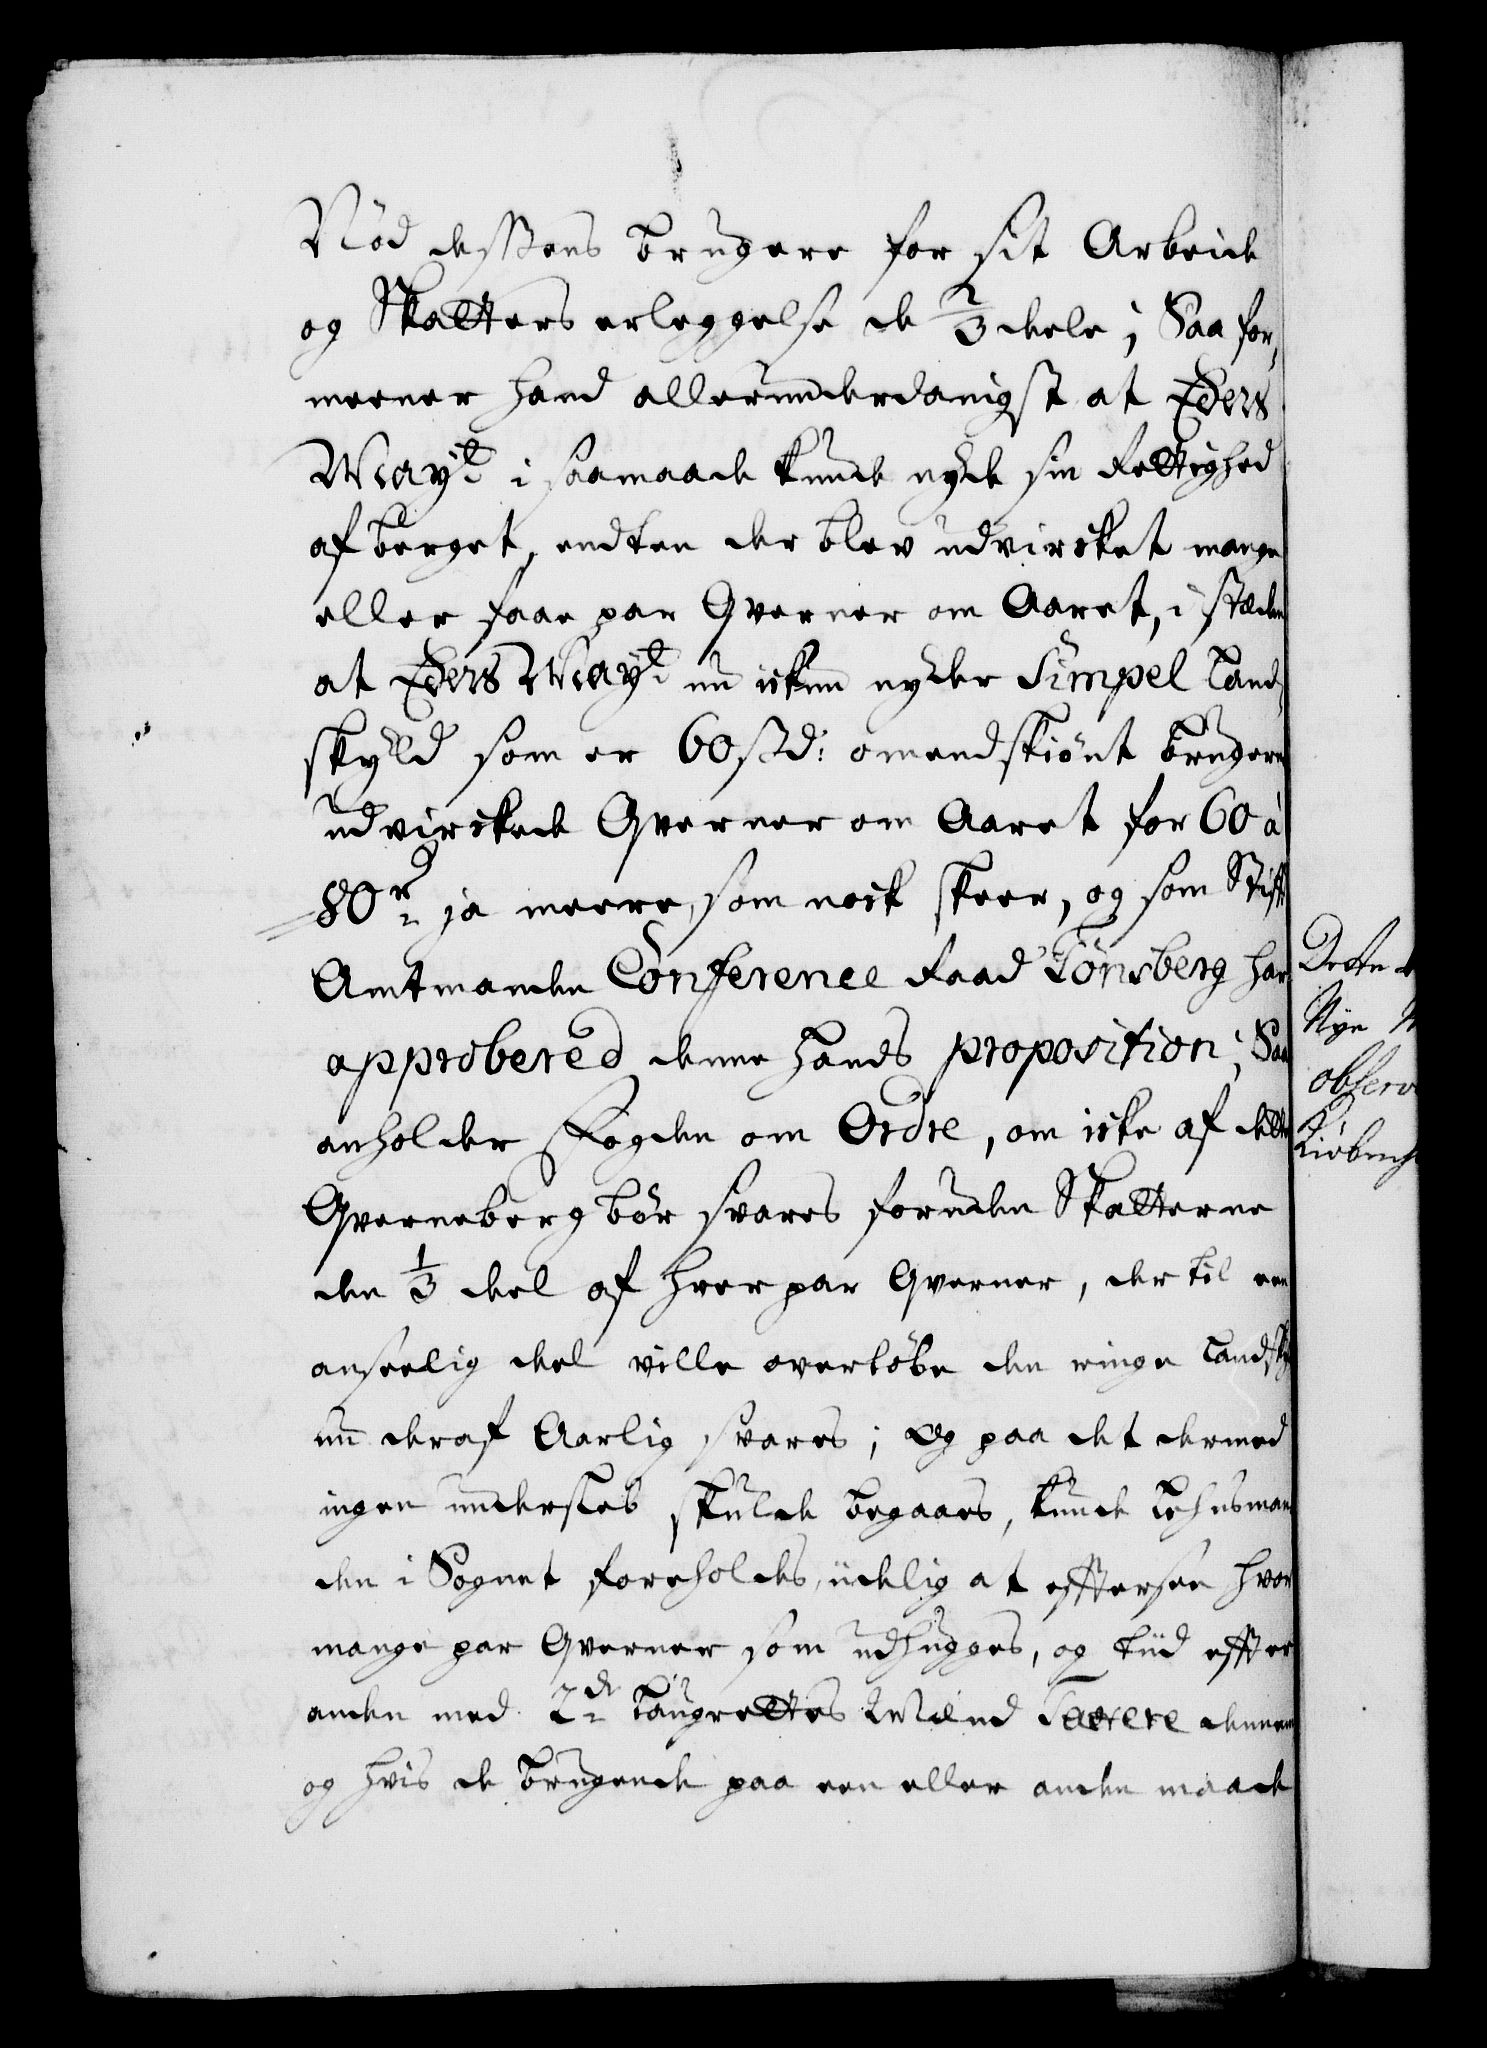 Nöd dessens brugere for sit Arbeide
og Skatters erleggelse de 2/3 dele; Saa for,
meener hand allerunderdanigst at Eders
Mayt: i saamaade kunde nyde sin Rettighed
af berget, endten der blev udvircket mange
eller faae par Qverner om Aaret, i stæden
at Eders Mayt: nu ickun nyder Simpel Land,
skyld som er 60 ß d: omendskiönt brugeren
udvirckede Qverner om Aaret for 60 à
80 r ja meere, som nock skeer, og som Stifft
Amtmanden Conference Raad Tönsberg har
approbered denne hands proposition; Saa
anholder Fogden om Ordre, om icke af dette
Qverneberg bör svares foruden Skatterne
den 1/3 deel af hver par Qverner, der til een
anseelig deel ville overlöbe den ringe Landsky
nu deraf Aarlig svares; Og paa det dermed
ingen undersleb skulde begaaes, kunde Lehnsman
den i Sognet foreholdes, üdelig at effttersee hvor
mange par Qverner som udhugges, og tiid effter
anden med 2de Laugrettes Mænd Taxere dennem
og hvis de brugende paa een eller anden maade
Dette
Nye
observ
Kiöbenh